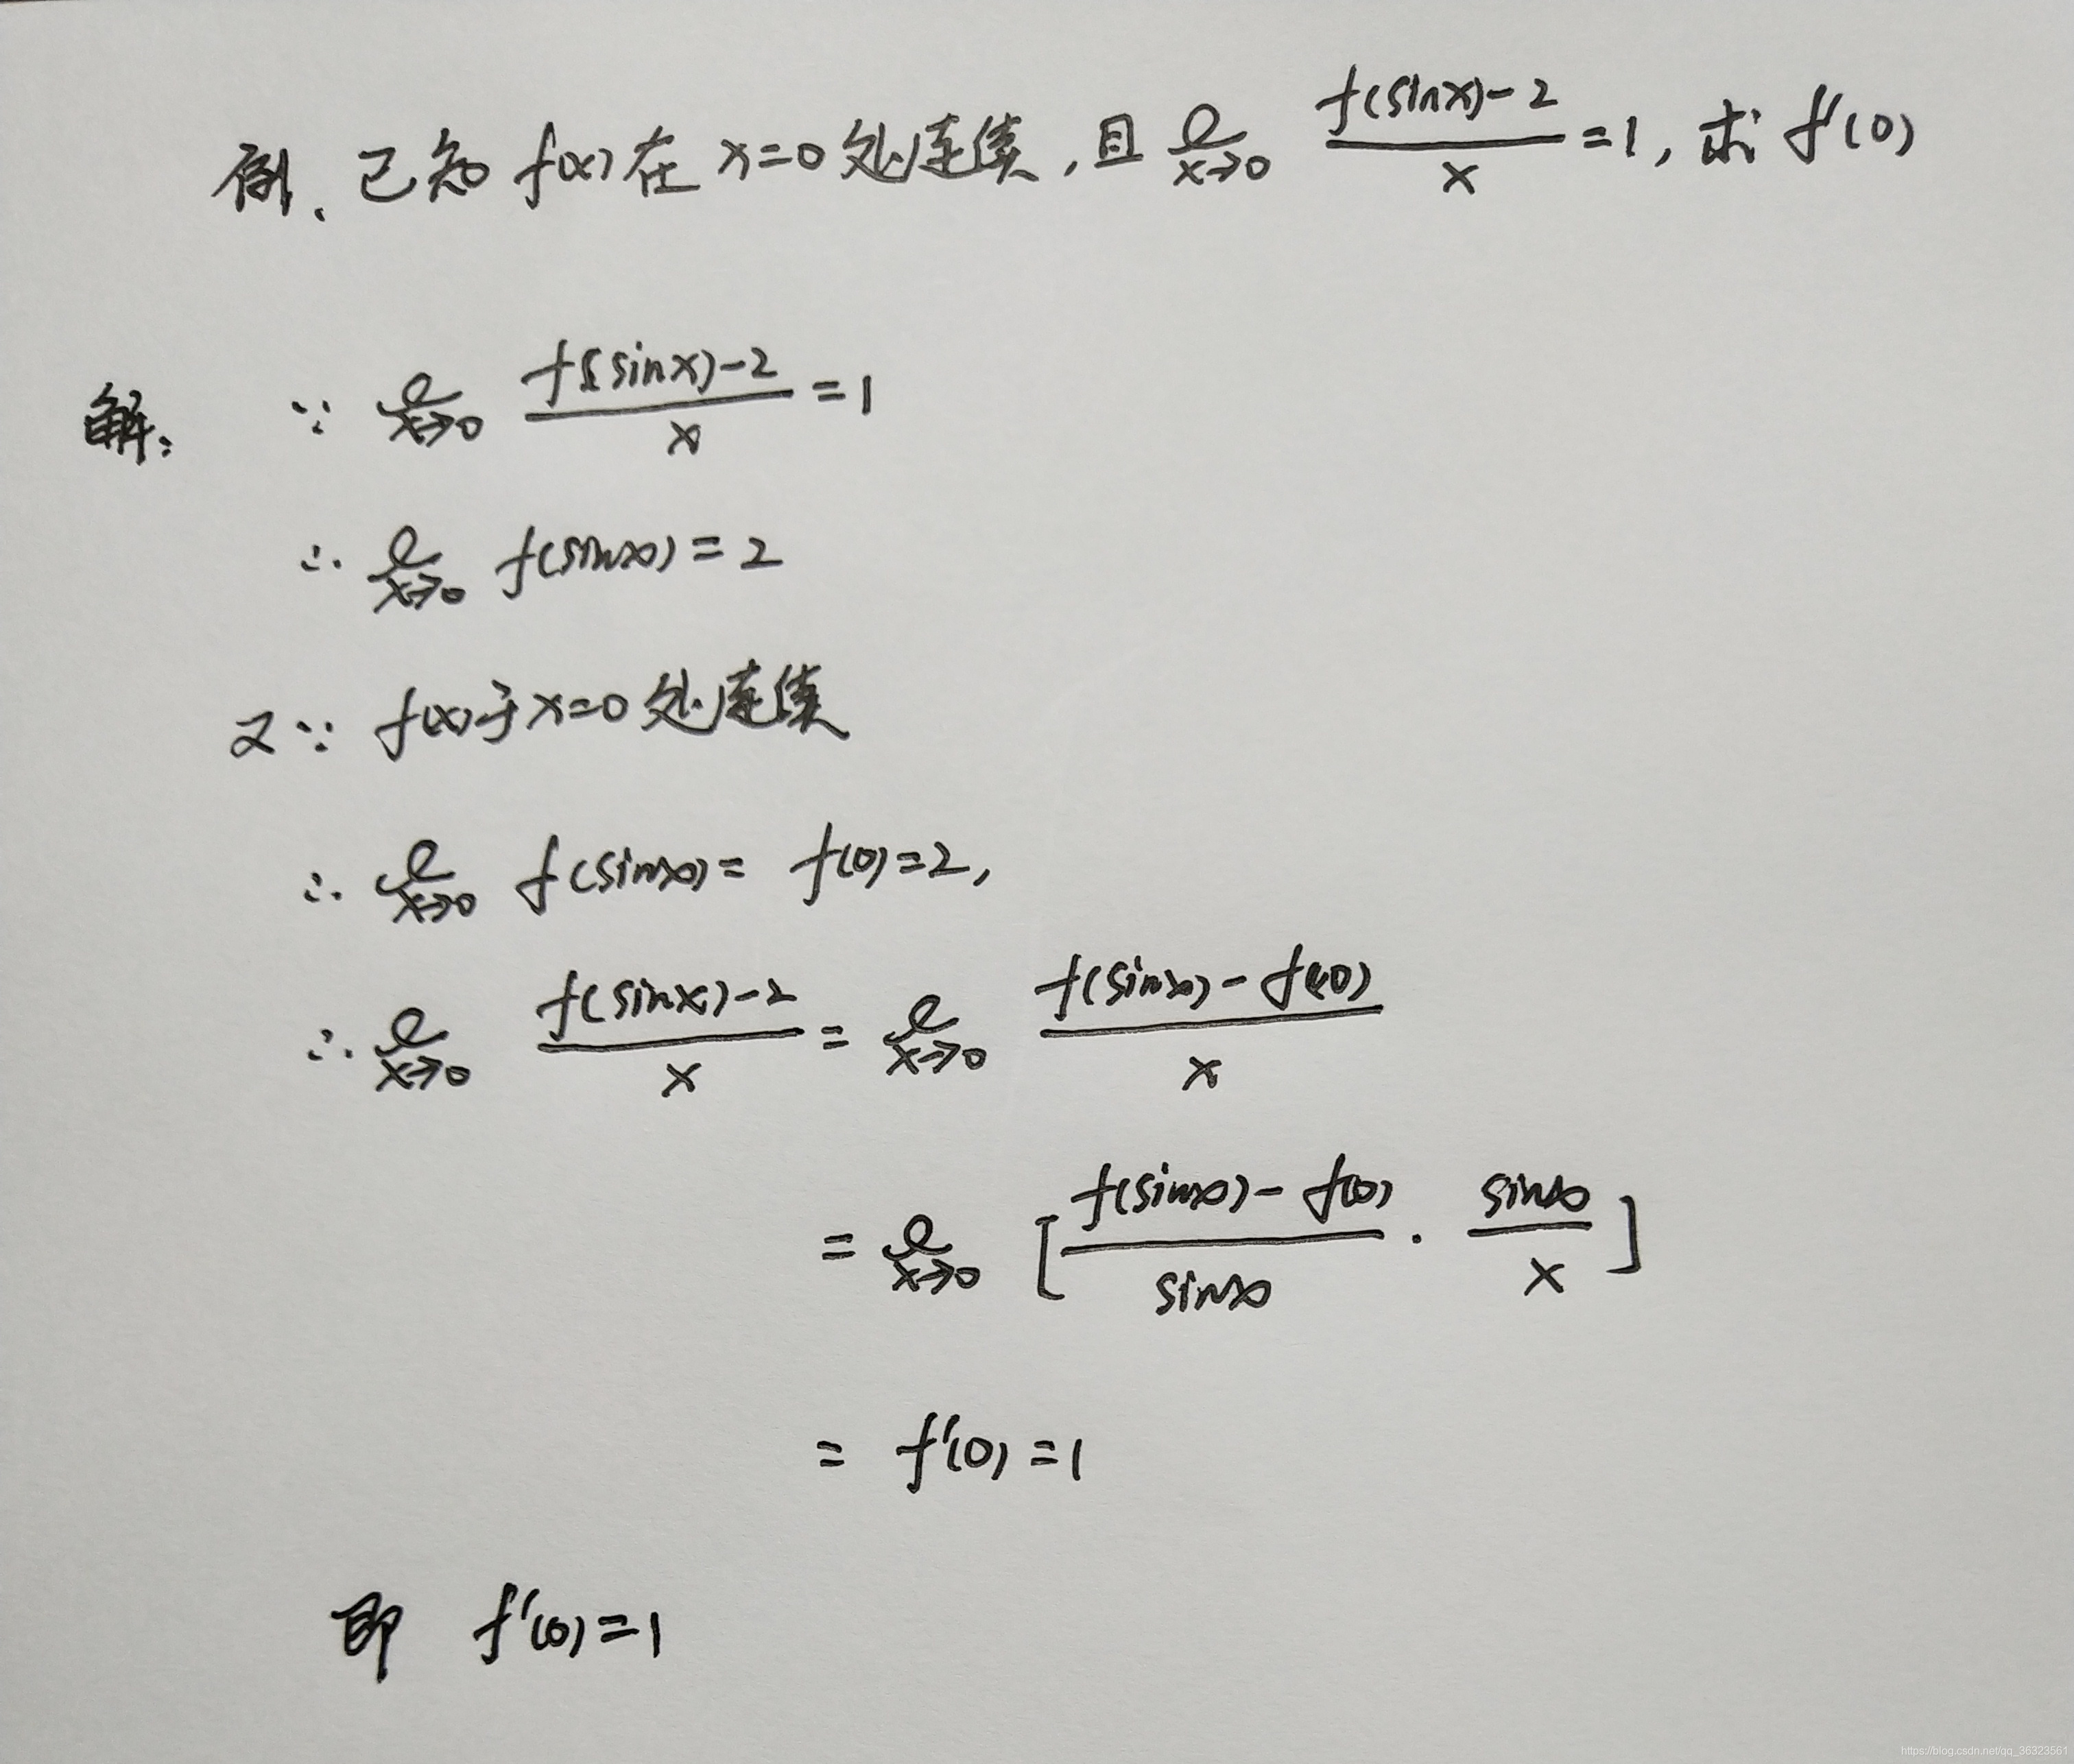 例、已知 f(x) 在 x=0 处连续,且 lim_{x→0} \frac{f(sinx)-2}{x} =1, 求 f'(0)
解: ∵ lim_{x→0} \frac{f(sinx)-2}{x} =1
∴ lim_{x→0} f(sinx) = 2
又∵ f(x)于x=0 处连续
∴ lim_{x→0} f(sinx) = f(0)=2,
∴ lim_{x→0} \frac{f(sinx)-2}{x} = lim_{x→0} \frac{f(sinx)-f(0)}{x}
= lim_{x→0} [\frac{f(sinx)-f(0)}{sinx} · \frac{sinx}{x}]
= f'(0) =1
即 f'(0)=1
https://blog.csdn.net/qq_36323561